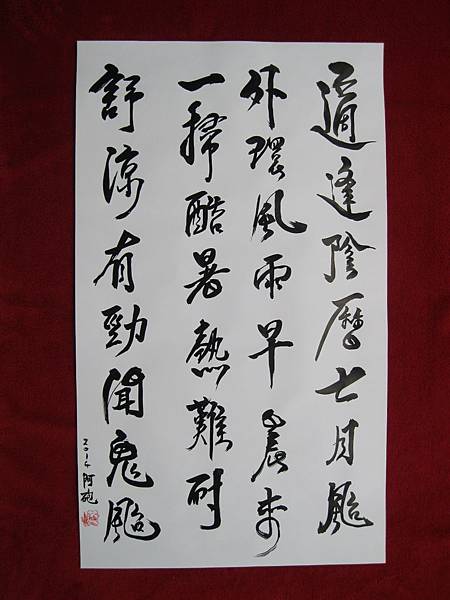 適逢陰曆七月颱
外環風雨早晨
一掃酷暑熱難耐
舒涼有勁聞鬼颱
2014 阿砲